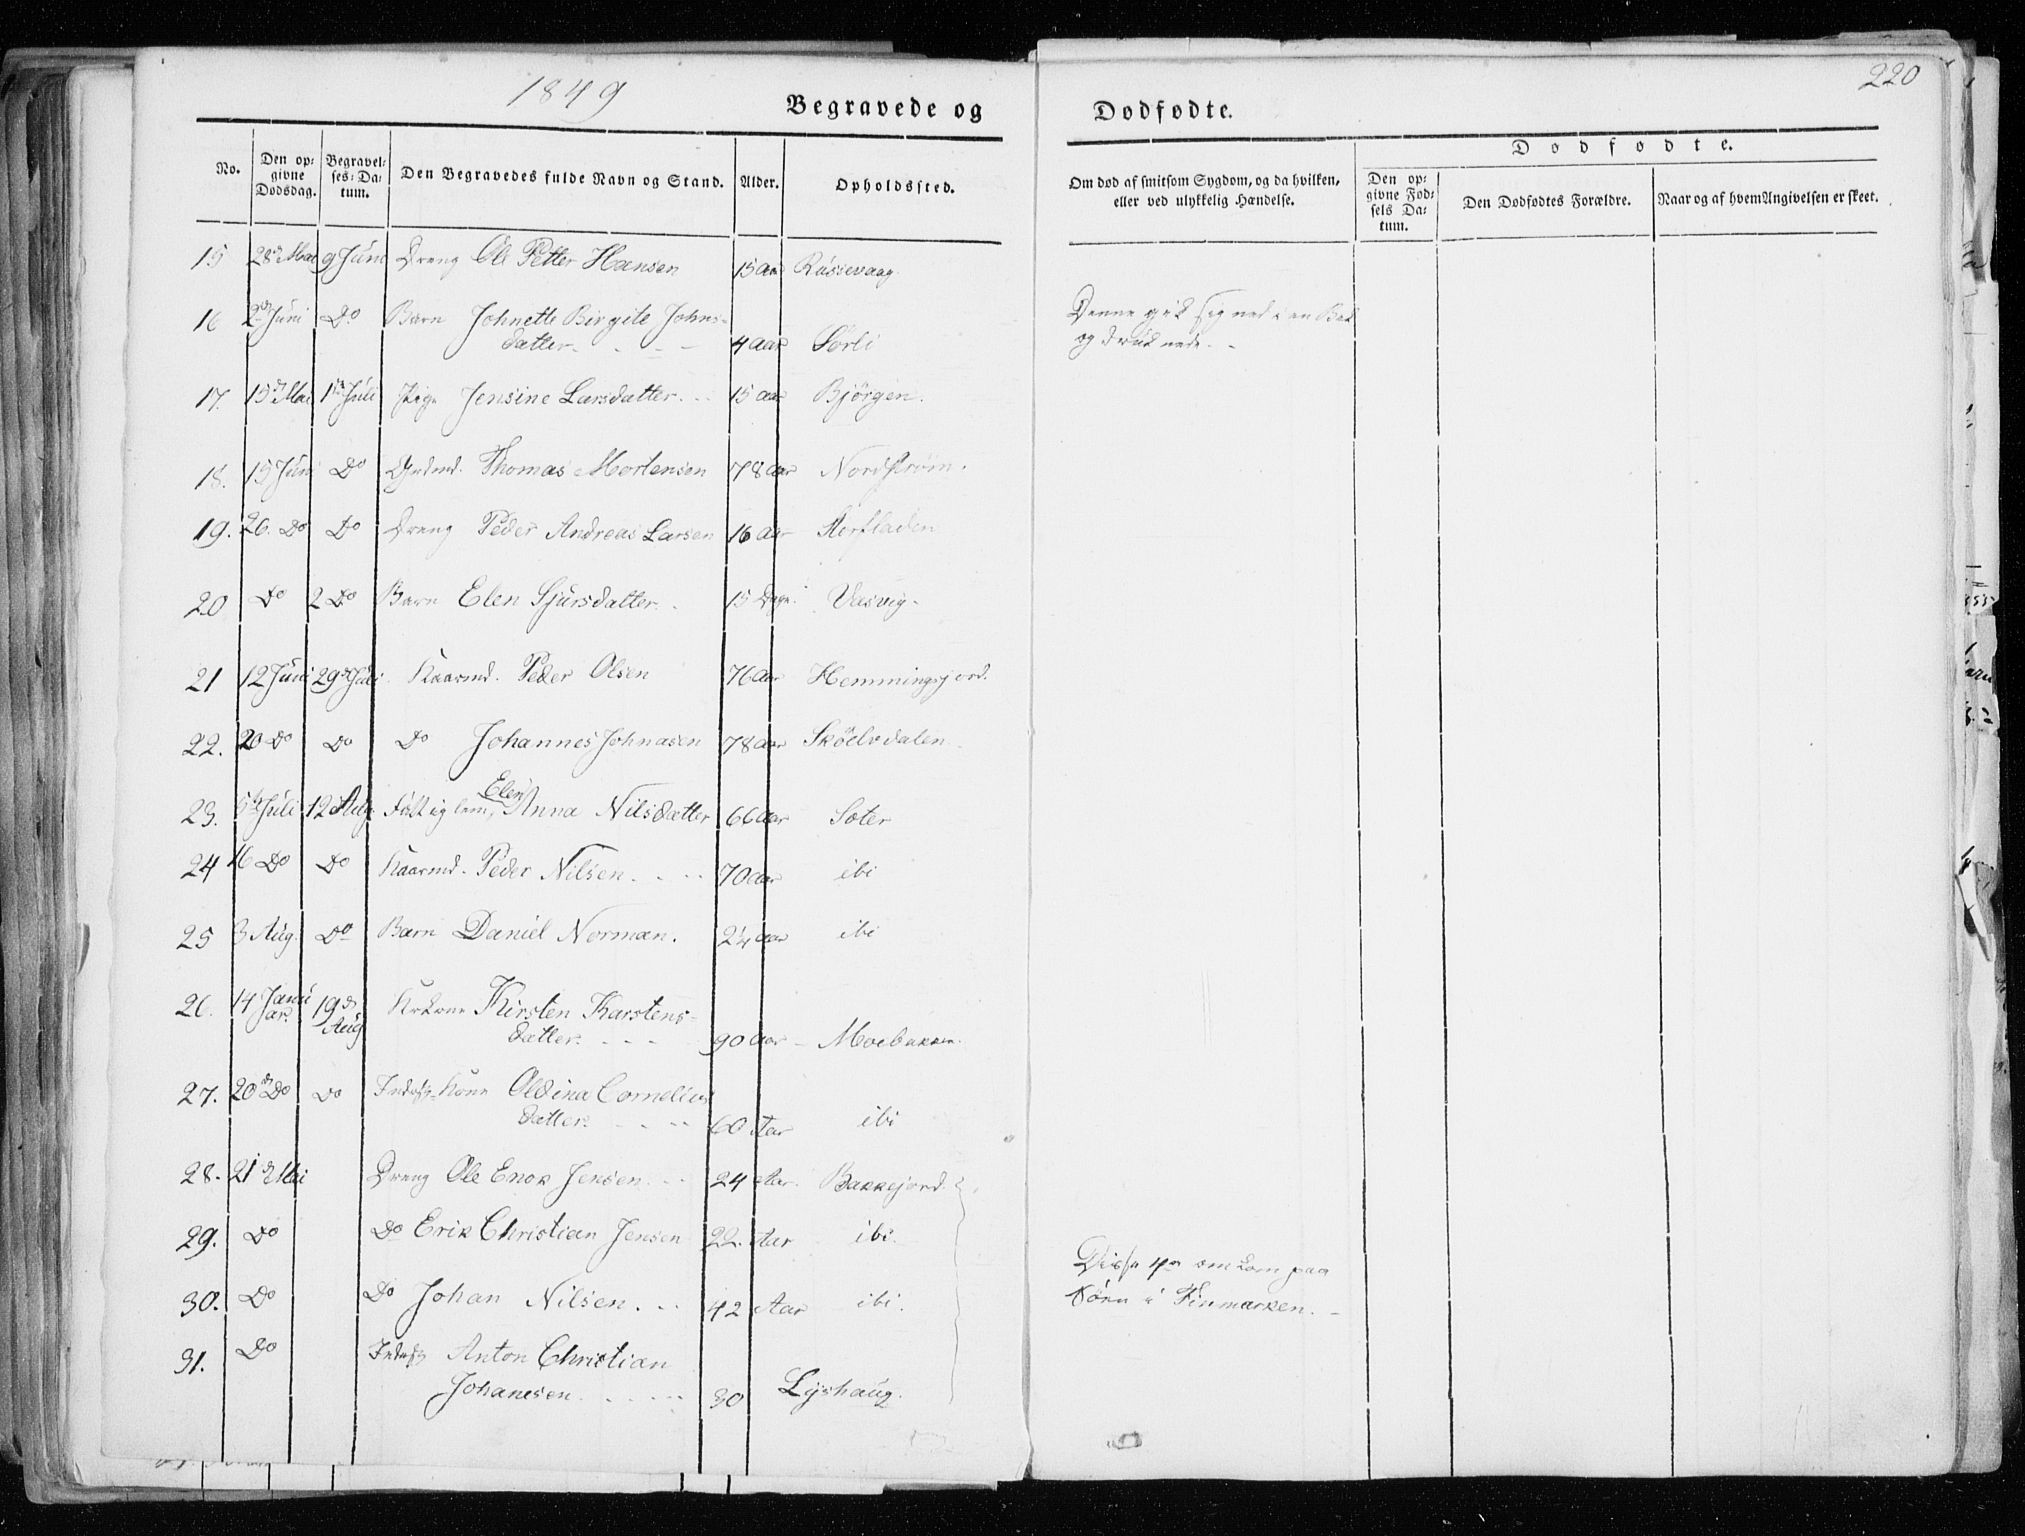 1849
220
Begravede og Dødfødte.
No. Den opgivne Dødsdag. Begravelses-Datum. Den Begravedes fulde Navn og Stand. Alder. Opholdssted. Om død af smitsom Sygdom, og da hvilken, eller ved ulykkelig Hændelse. Dødfødte.
Den opgivne Fødsels Datum. Den Dødfødtes Forældre. Naar og af hvem Angivelsen er skeet.
15 28de Mai 9 Juni Dreng Ole Petter Hansen 15 Aar Russevaag.
16 2den Juni Do Barn Johnette Birgite Johns- Denne gik sig ned i en Bek
datter. 4 Aar Sørli og druknede.
17. 15de Mai 1ste Juli Pige Jensine Larsdatter. 15 Aar Bjørgen.
18. 15 Juni Do Gudmd. Thomas Mortensen 78 Aar Nordstrøm.
19. 26. Do Do Dreng Peder Andreas Larsen 16 Aar Storfladen
20 Do 2 Do Barn Elen Sjursdatter. 15 Dage. Vasvig.
21 12 Juni 29de Juli Kaarmd. Peder Olsen 76 Aar Hemmingsjord.
22. 20 Do Do Do Johannes Johnasen 78 Aar Skøelvdalen
Elen
23. 5te Juli 12 Aug. Fattiglem, Anna Nilsdatter 66 Aar Soter
24 16 Do Do Kaarmd. Peder Nilsen. 70 Aar ibi
25 3 Aug. Do Barn Daniel Norman. 24 Aar ibi
26. 14 Janu 19de Kirsten Karstens-
ar. Aug datter. 90 Aar Moebakken.
27. 20de Do Do Kone Oldina Cornelius
datter. 60 Aar ibi
28. 21de Mai Dreng Ole Enok Jensen. 24 Aar. Bakkejord.
29. Do Do Erik Christian Jensen 22. Aar ibi. Disse 4re omkom paa
30. Do Do Johan Nilsen. 42 Aar ibi. Søen i Finmarken.
31. Do Anton Christian
Johanesen. 30 Lyshaug.